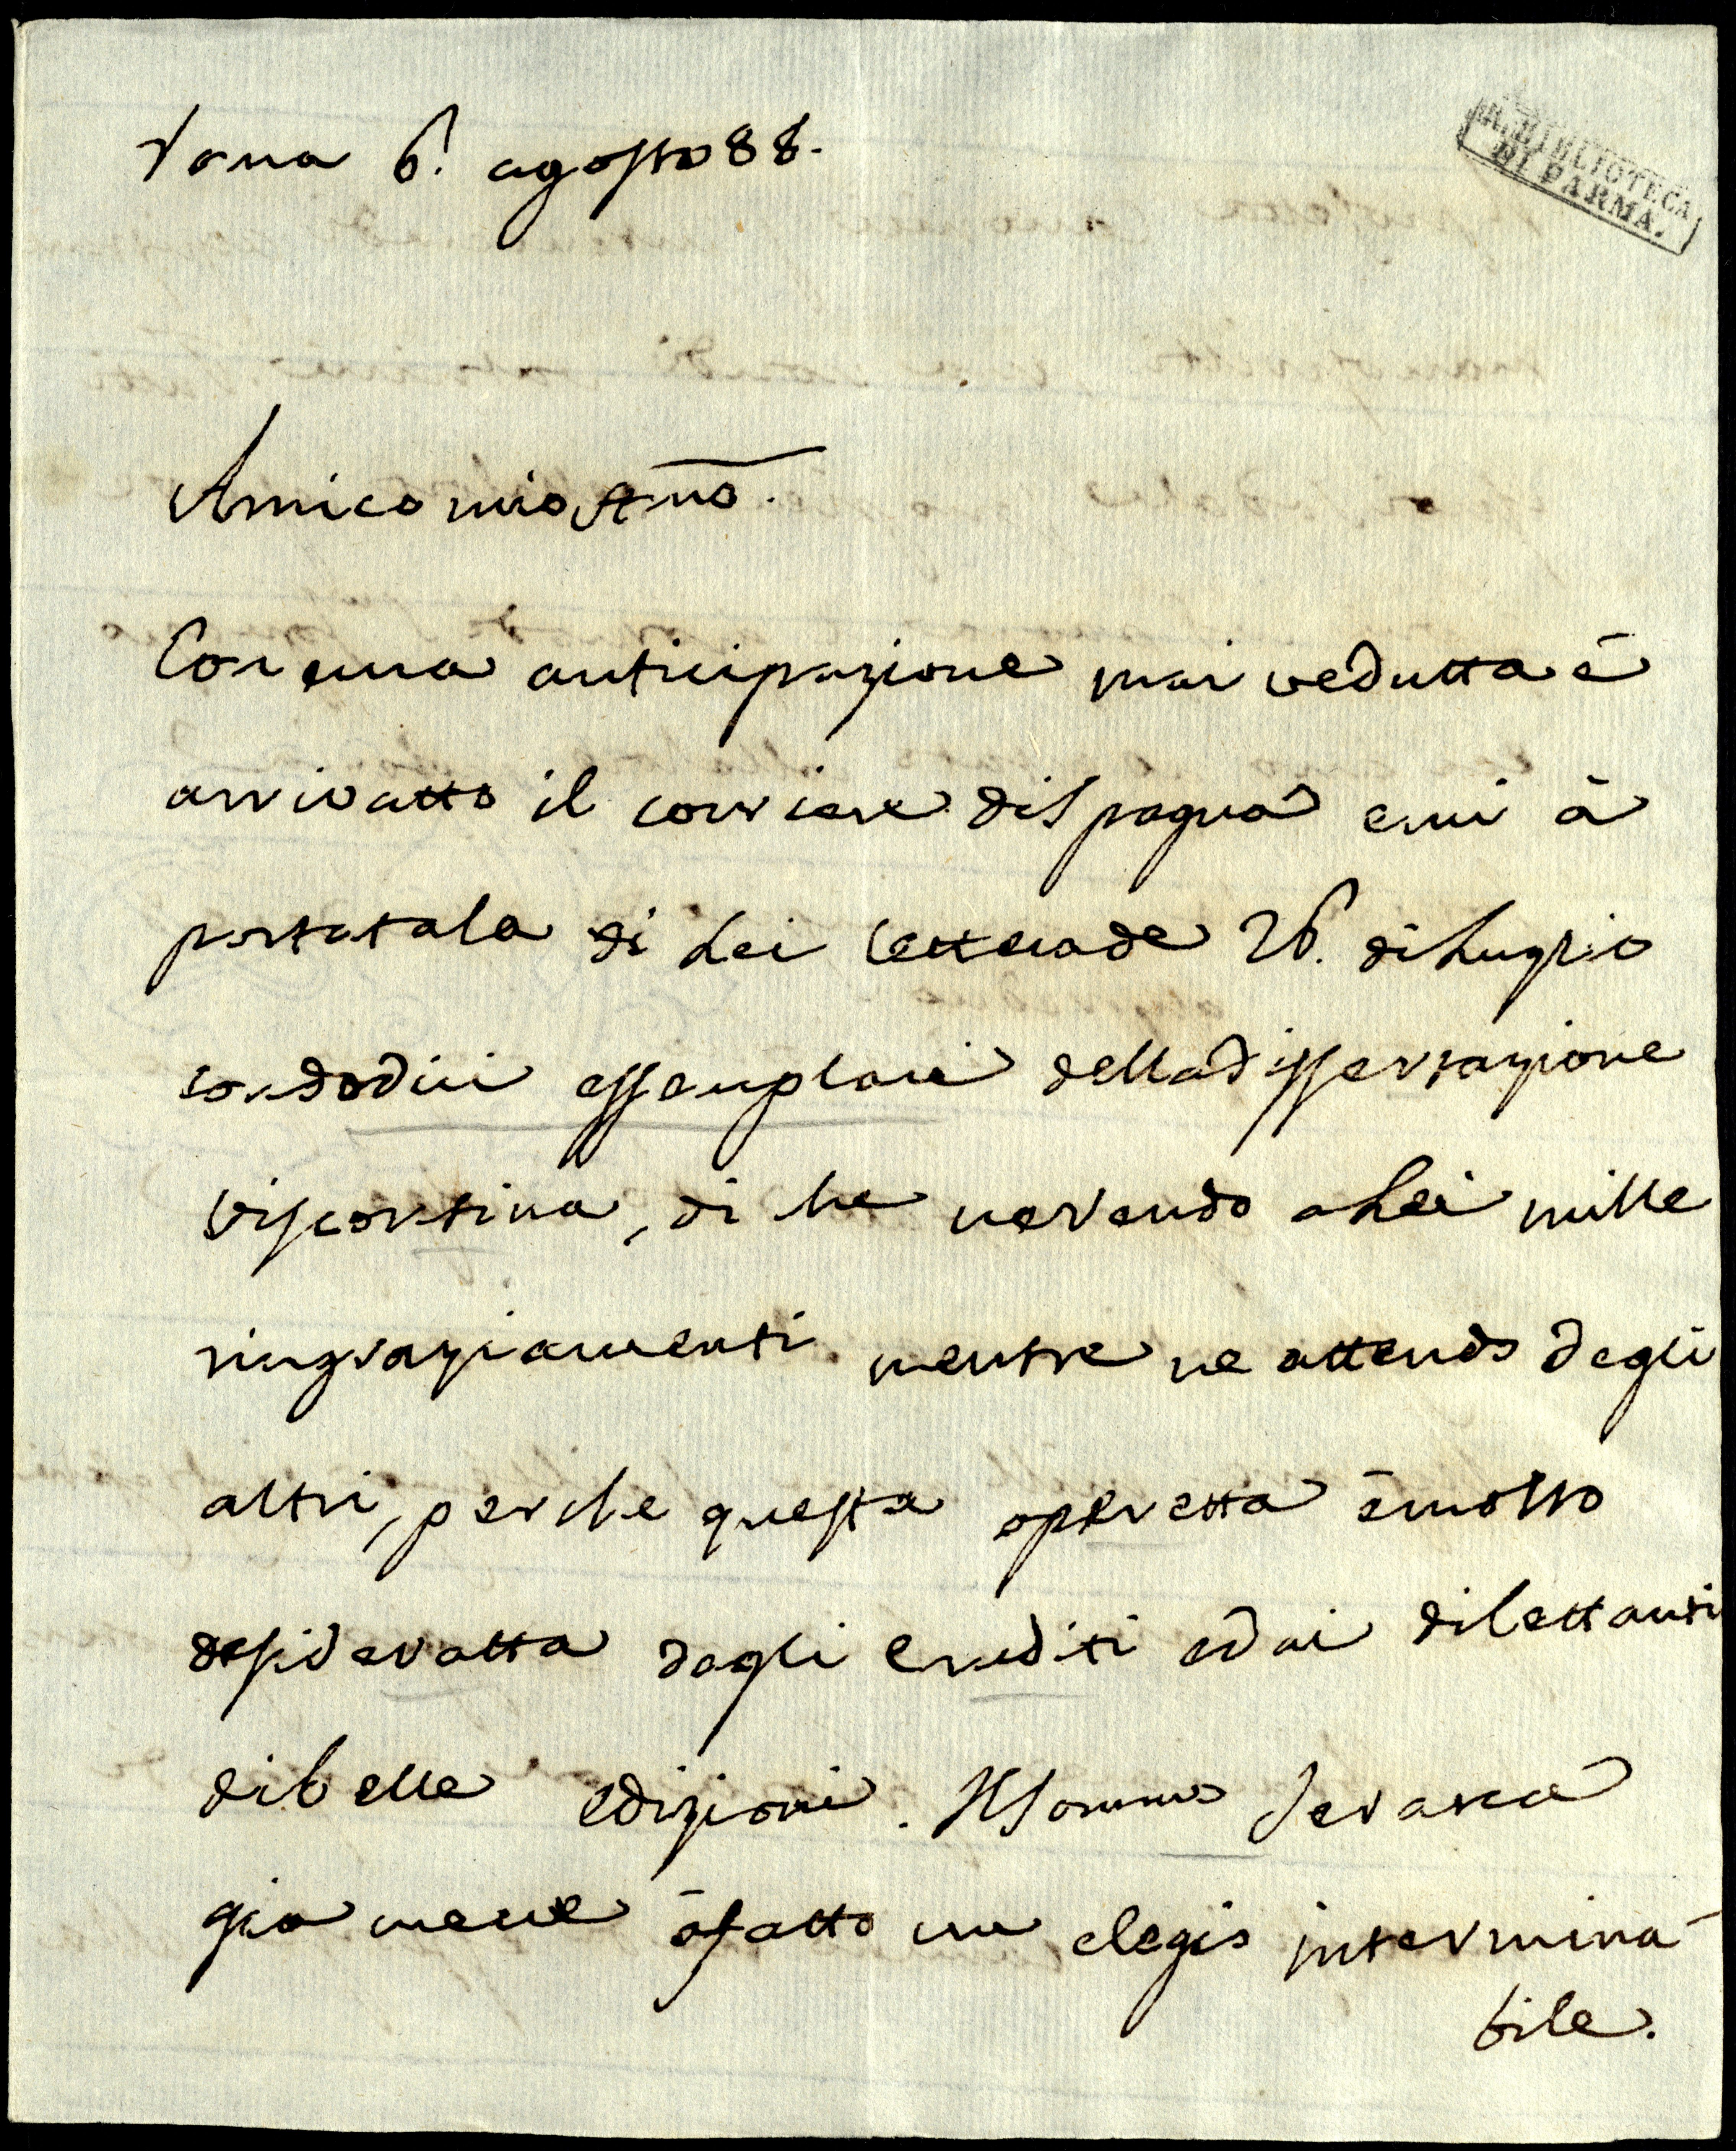 Roma 6. agosto 88.
R. BIBLIOTECA
DI PARMA.
Amico mio Amo.
Con una anticipazione mai vedutta è
arrivatto il corriere di Spagna e mi à
portata la di Lei lettera de 26. di Luglio
con dodici essemplari della dissertazione
viscontina, di che ne rendo a Lei mille
ringraziamenti mentre ne attendo degli
altri, perche questa operetta è molto
desideratta dagli eruditi ed ai dilettanti
di belle edizioni. Il Sommo
già me ne à fatto un elogio intermina-
bile.